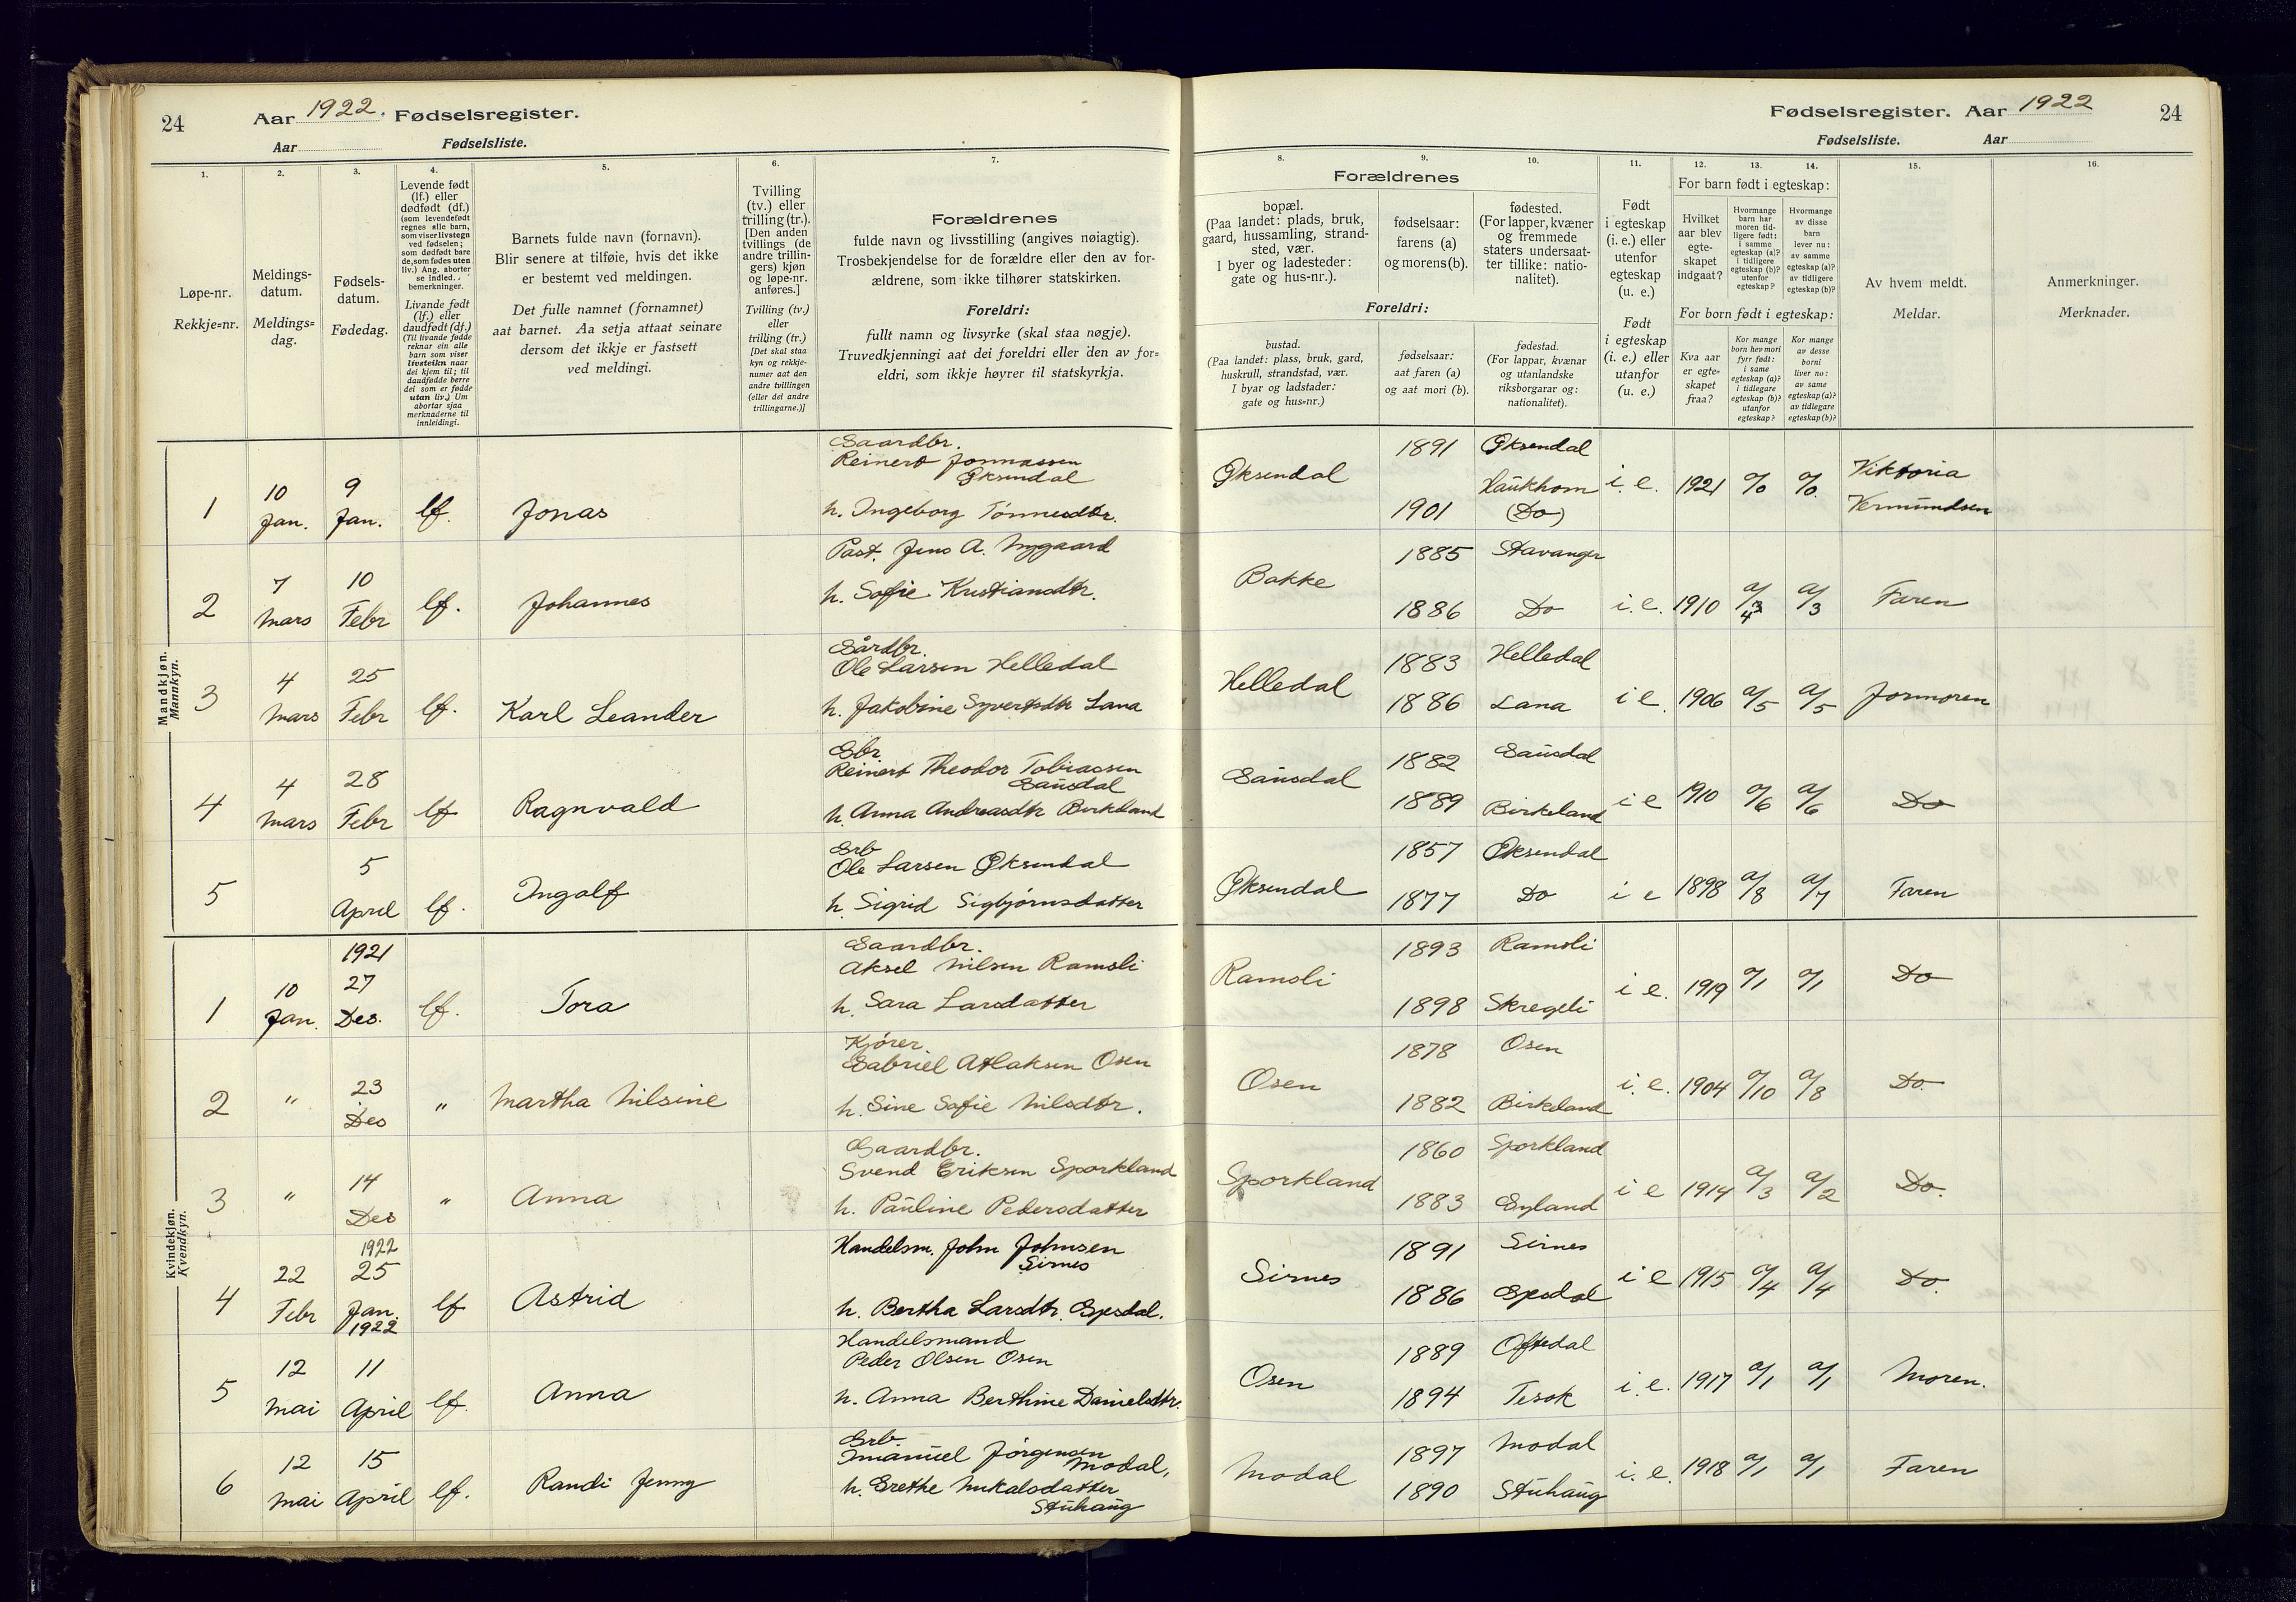 24
Aar 1922. Fødselsregister.
Aar Fødselsliste.
1. 2. 3. 4. 5. 6. 7.
Løpe-nr.
Rekkje=nr.
Meldings-
datum.
Meldings=
dag.
Fødsels-
datum.
Fødedag.
Levende født
(lf.) eller
dødfødt (df.)
(som levendefødt
regnes alle barn,
som viser livstegn
ved fødselen;
som dødfødt bare
de, som fødes uten
liv.) Ang. aborter
se indled.
bemerkninger.
Livande født
(lf.) eller
daudfødt (df.)
(Til livande fødde
reknar ein alle
barn som viser
livsteikn naar
dei kjem til; til
daudfødde berre
dei som er fødde
utan liv.) Um
abortar sjaa
merknaderne til
innleidingi.
Barnets fulde navn (fornavn).
Blir senere at tilføie, hvis det ikke
er bestemt ved meldingen.
Det fulle namnet (fornamnet)
aat barnet. Aa setja attaat seinare
dersom det ikkje er fastsett
ved meldingi.
Tvilling
(tv.) eller
trilling (tr.).
[Den anden
tvillings (de
andre trillin-
gers) kjøn
og løpe-nr.
anføres.]
Tvilling (tv.)
eller
trilling (tr.)
[Det skal staa
kyn og rekkje-
numer aat den
andre tvillingen
(eller dei andre
trillingarne.)]
Forældrenes
fulde navn og livsstilling (angives nøiagtig).
Trosbekjendelse for de forældre eller den av for-
ældrene, som ikke tilhører statskirken.
Foreldri:
fullt namn og livsyrke (skal staa nøgje).
Truvedkjenningi aat dei foreldri eller den av for=
eldri, som ikkje høyrer til statskyrkja.
Mandkjøn.
Mannkyn.
Gaardbr.
Reinert Jonnassen
Øksendal
1 10 Jan. 9 Jan. lf. Jonas h. Ingeborg Tönnesdtr.
Past. Jens A. Nygaard
2 7 Mars 10 Febr lf. Johannes h. Sofie Kristiansdtr.
Gårdbr.
Ole Larsen Helledal
3 4 Mars 25 Febr lf. Karl Leander h. Jakobine Syvertsdtr Lana
Gbr.
Reinert Theodor Tobiassen
Gausdal
4 4 Mars 28 Febr lf Ragnvald h. Anna Andreasdtr Birkeland
Grb
Ole Larsen Øksendal
5 5 April lf. Ingolf h. Sigrid Sigbjörnsdatter
Kvindekjøn.
Kvendkyn.
Gaardbr.
Aksel Nilsen Ramsli
1 10 Jan. 1921 27 Des. lf. Tora h. Sara Larsdatter
Kjörer.
Gabriel Atlaksen Osen
2 " 23 Des " Martha Nilsine h. Sine Sofie Nilsdtr.
Gaardbr.
Svend Eriksen Sporkland
3 " 14 Des " Anna h. Pauline Pedersdatter
Handelsm. John Johnsen
Sirnes
4 22 Febr 1922 25 Jan. lf Astrid h. Bertha Larsdtr. Espedal.
Handelsmand
Peder Olsen Osen
5 12 Mai 1922 11 April lf. Anna h. Anna Berthine Danielsdtr.
Grb.
Imanuel Jörgensen
Modal,
6 12 Mai 15 April lf. Randi Jenny h. Grethe Mikalsdatter
Stuhaug
Fødselsregister. Aar 1922 24
Fødselsliste. Aar
8. 9. 10. 11. 12. 13. 14. 15. 16.
Forældrenes
bopæl.
(Paa landet: plads, bruk,
gaard, hussamling, strand-
sted, vær.
I byer og ladesteder:
gate og hus-nr.).
fødselsaar:
farens (a)
og morens (b).
fødested.
(For lapper, kvæner
og fremmede
staters undersaat-
ter tillike: natio-
nalitet).
Foreldri:
bustad.
(Paa landet: plass, bruk, gard,
huskrull, strandstad, vær.
I byar og ladstader:
gate og hus=nr.)
fødselsaar:
aat faren (a)
og aat mori (b).
fødestad.
(For lappar, kvænar
og utanlandske
riksborgarar og:
nationalitet).
Født
i egteskap
(i. e.) eller
utenfor
egteskap
(u. e.)
Født
i egteskap
(i. e.) eller
utanfor
(u. e.)
For barn født i egteskap:
Hvilket
aar blev
egte-
skapet
indgaat?
Hvormange
barn har
moren tid-
ligere født:
i samme
egteskap (a)?
i tidligere
egteskap (b)?
utenfor
egteskap?
Hvormange
av disse
barn
lever nu:
av samme
egteskap (a)?
av tidligere
egteskap (b)?
For born født i egteskap:
Kva aar
er egte=
skapet
fraa?
Kor mange
born hev mori
fyrr født:
i same
egteskap (a)?
i tidlegare
egteskap (b)?
utanfor
egteskap?
Kor mange
av desse
borni
liver no:
av same
egteskap (a)?
av tidlegare
egteskap (b)?
Av hvem meldt.
Meldar.
Anmerkninger.
Merknader.
1891 Øksendal
Øksendal Haukhom i. e. 1921 0/0 0/0 Viktoria
1901 (Do) Vermundsen
1885 Stavanger
Bakke 1886 Do i. e. 1910 a/3 4 a/3 Faren
1883 Helledal
Helledal 1886 Lana i e. 1906 a/5 a/5 Jormoren
1882 Gausdal
Gausdal 1889 Birkeland i e 1910 a/6 a/6 Do
1857 Øksendal
Øksendal 1877 Do i e 1898 a/8 a/7 Faren
1893 Ramsli
Ramsli 1898 Skregeli i e. 1919 a/1 a/1 Do
1878 Osen
Osen 1882 Birkeland i. e. 1904 a/10 a/8 Do.
1860 Sporkland
Sporkland 1883 Eyland i e 1914 a/3 a/2 Do.
1891 Sirnes
Sirnes 1886 Espedal i e 1915 a/4 a/4 Do.
1889 Oftedal
Osen 1894 Tesok i. e. 1917 a/1 a/1 Moren.
1897 Modal
Modal 1890 Stuhaug i. e. 1918 a/1 a/1 Faren